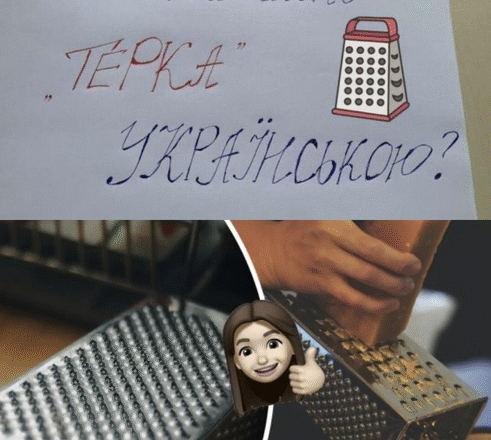 „ТЕРКА"
УКРАЇНСЬКОЮ?